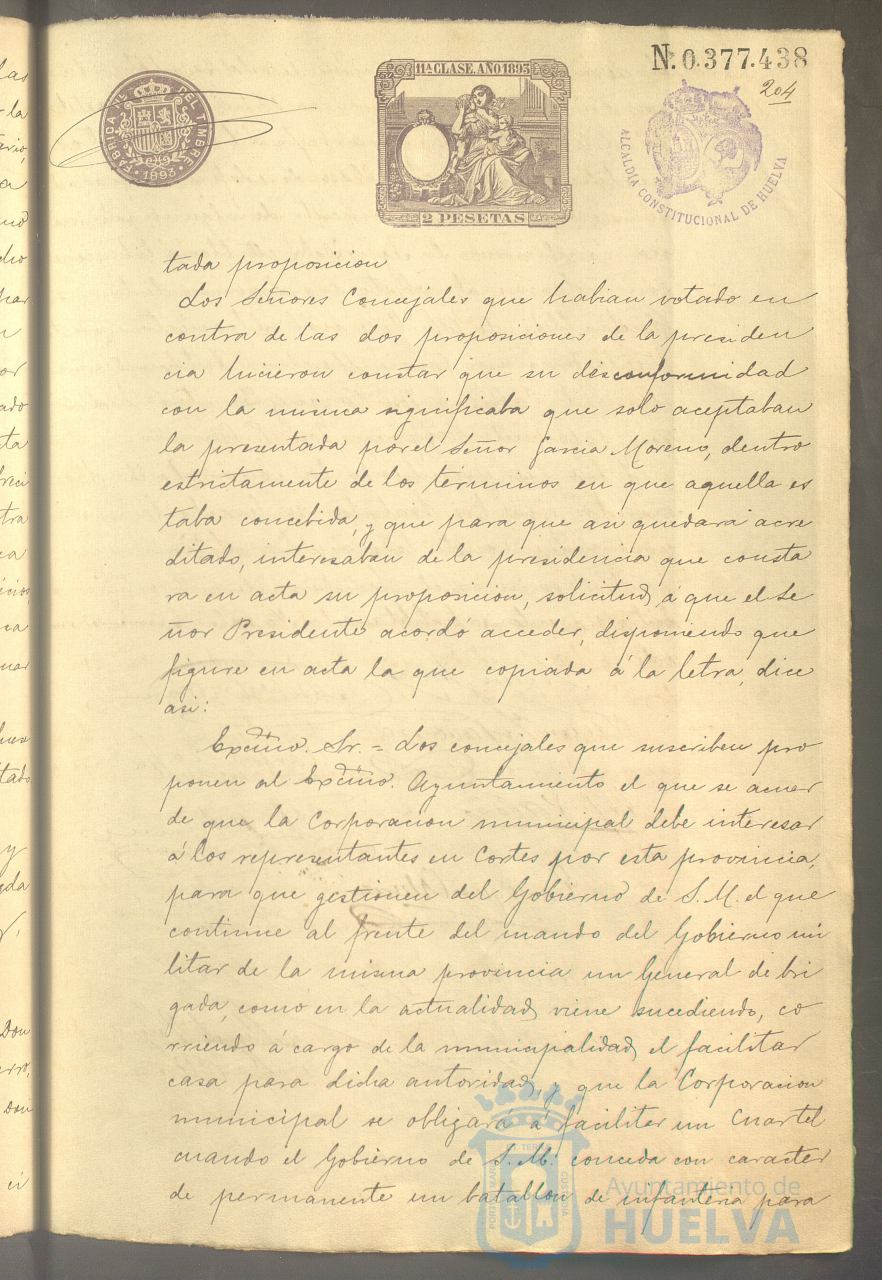 N. 0.377.438
204
FABRICA DEL TIMBRE
1893
11ª CLASE. AÑO 1893
2 PESETAS
ALCALDIA CONSTITUCIONAL DE HUELVA
tada proposicion
Los Señores Concejales que habian votado en
contra de las dos proposiciones de la presiden
cia hicieron constar que su disconformidad
con la misma significaba que solo aceptaban
la presentada por el Señor Garcia Moreno, dentro
estrictamente de los términos en que aquella es
taba concebida, y que para que asi quedará acre
ditado, interesaban de la presidencia que consta
ra en acta su proposicion, solicitud á que el Se
ñor Presidente acordó acceder, disponiendo que
figure en acta la que copiada á la letra, dice
asi:
Excmo. Sr. = Los concejales que suscriben pro
ponen al Excmo. Ayuntamiento el que se acuer
de que la Corporacion municipal debe interesar
á los representantes en Cortes por esta provincia,
para que gestionen del Gobierno de S. M. el que
continue al frente del mando del Gobierno mi
litar de la misma provincia un General de bri
gada, como en la actualidad viene sucediendo, co
rriendo á cargo de la municipalidad el facilitar
casa para dicha autoridad, y que la Corporacion
municipal se obligará á faciliter un Cuartel
cuando el Gobierno de S. M. conceda con caracter
de permanente un batallon de infanteria para
Ayuntamiento de
HUELVA